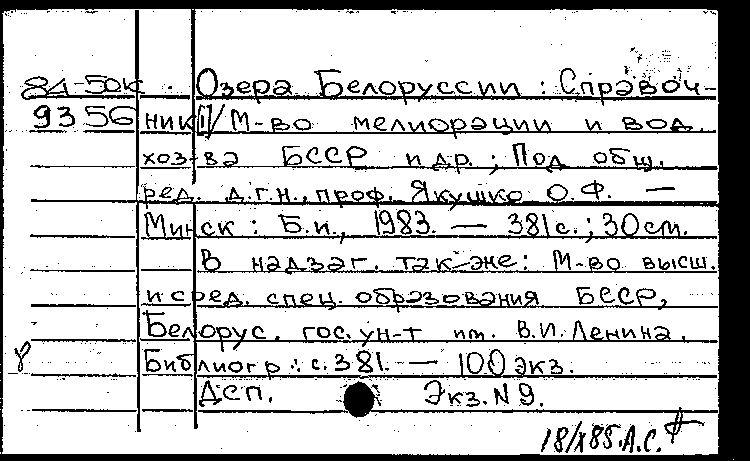 84-50к · Озера Белоруссии : Справоч-
9356 ник / М-во мелиорации и вод.
хоз-ва БССР и др. ; Под общ.
ред. д.г.н., проф. Якушко О.Ф. —
Минск : Б.и., 1983. — 381с. ; 30см.
В надзаг. так-же: М-во высш.
и сред. спец. образования БССР,
Белорус. гос. ун-т им. В.И. Ленина.
Библиогр.: с. 381. — 100 экз.
Дсп. Экз. N 9.
18/X85. А.С.